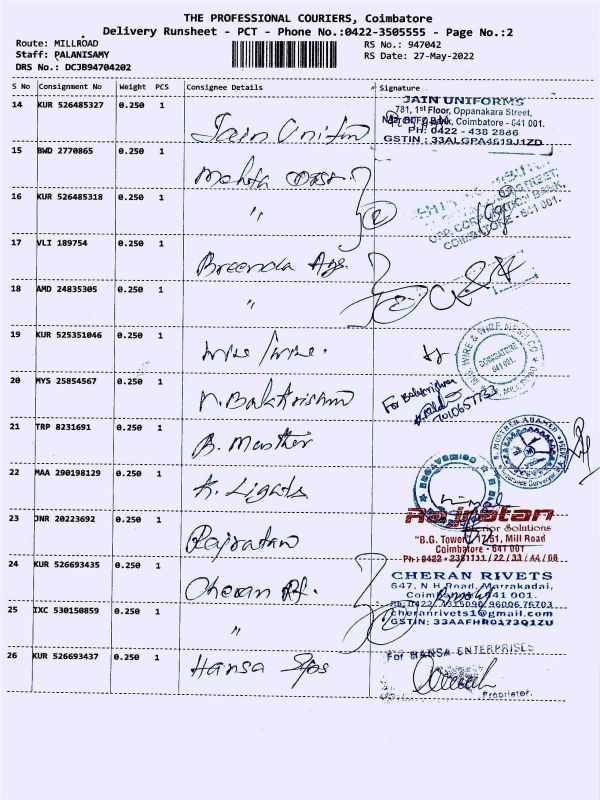 THE PROFESSIONAL COURIERS, Coimbatore
Delivery Runsheet - PCT - Phone No.:0422-3505555 - Page No.:2
Route: MILLROAD
RS No.: 947042
Staff: PALANISAMY
RS Date: 27-May-2022
DRS No.: DCJB94704202
S No Consignment No Weight PCS Consignee Details Signature
14 KUR 526485327 0.250 1 Jain Uniform
JAIN UNIFORMS
781, 1st Floor, Oppanakara Street,
Coimbatore - 641 001.
Ph: 0422 - 438 2886
GSTIN : 33ALGPA4619J1ZD
15 BWD 2770865 0.250 1 Mehta
16 KUR 526485318 0.250 1 "
2
COIMBATORE - 641 001.
17 VLI 189754 0.250 1 Breenda Ags.
18 AMD 24835305 0.250 1 "
2
19 KUR 525351046 0.250 1 Wire/wire.
WIRE & WIRE MESH CO
COIMBATORE
641 001.
20 MYS 25854567 0.250 1 N. Bakthrishnn
For Balakrishnan
7010657733
21 TRP 8231691 0.250 1 B. Musther
B. MUSTHER AHAMED
Insurance Surveyor
22 MAA 290198129 0.250 1 K. Lights
23 JNR 20223692 0.250 1 Rajratan
Rajratan
Interior Solutions
"B.G. Tower", 17/51, Mill Road
Coimbatore - 641 001
Ph : 0422 - 2381111 / 22 / 33 / 44 / 66
24 KUR 526693435 0.250 1 Cheran Rt.
CHERAN RIVETS
647, N H Road, Marrakadai,
Coimbatore - 641 001.
Ph: 0422 - 4315090, 96006 76703
cheranrivets1@gmail.com
GSTIN: 33AAFHR0173Q1ZU
25 IXC 530150859 0.250 1 "
2
26 KUR 526693437 0.250 1 Hansa Eps
For HANSA ENTERPRISES
Proprietor.